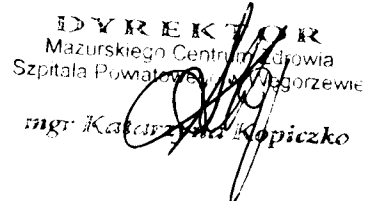 DYREKTOR
Mazurskiego Centrum Zdrowia
Szpitala Powiatowego w Węgorzewie
mgr Katarzyna Kopiczko